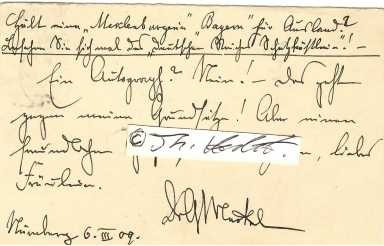 Hält eine „Mecklenburgerin“ Bayern für Ausland?
Besehen Sie sich mal des „deutschen Reichs Schatzkästlein“! —
Ein Autograph? Nein! — Das geht
gegen meine Grundsätze! Aber einen
freundlichen © Th. liebes
Fräulein.
Nürnberg 6. III 09. Dr